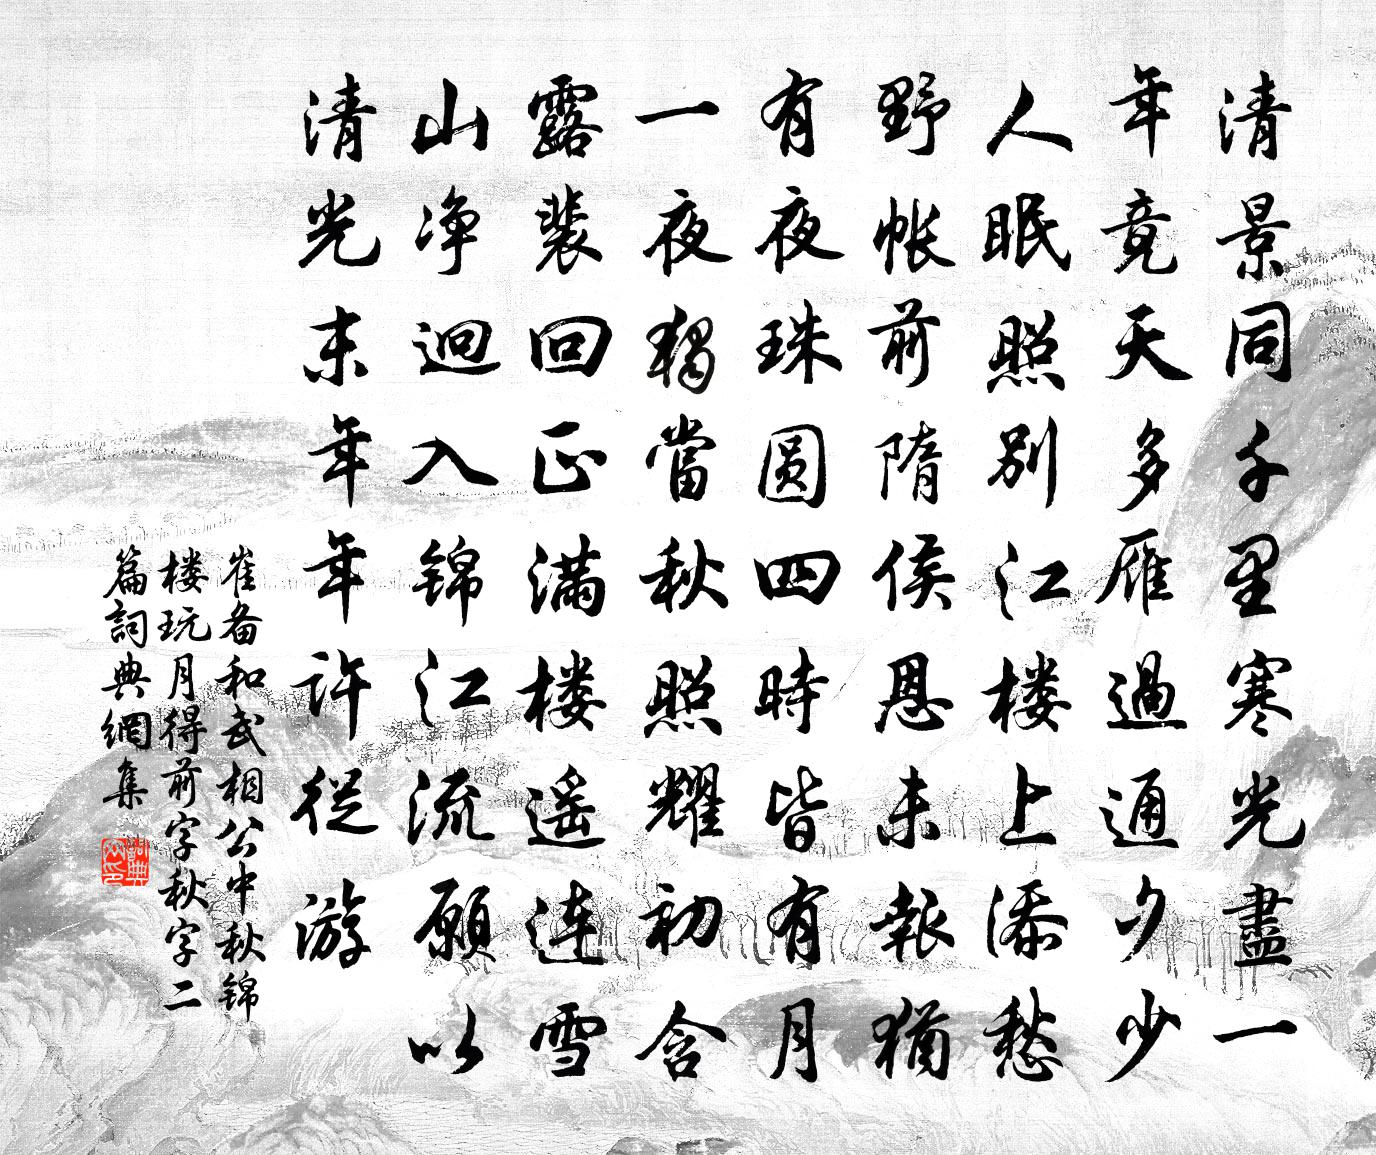 清景同千里寒光盡一
年竟天多雁過通夕少
人眠照别江楼上添愁
野帐前隋侯恩未報猶
有夜珠圆四時皆有月
一夜獨當秋照耀初含
露裴回正满楼遥连雪
山净迥入锦江流願以
清光末年年许從游
崔备和武相公中秋锦
楼玩月得前字秋字二
篇詞典網集